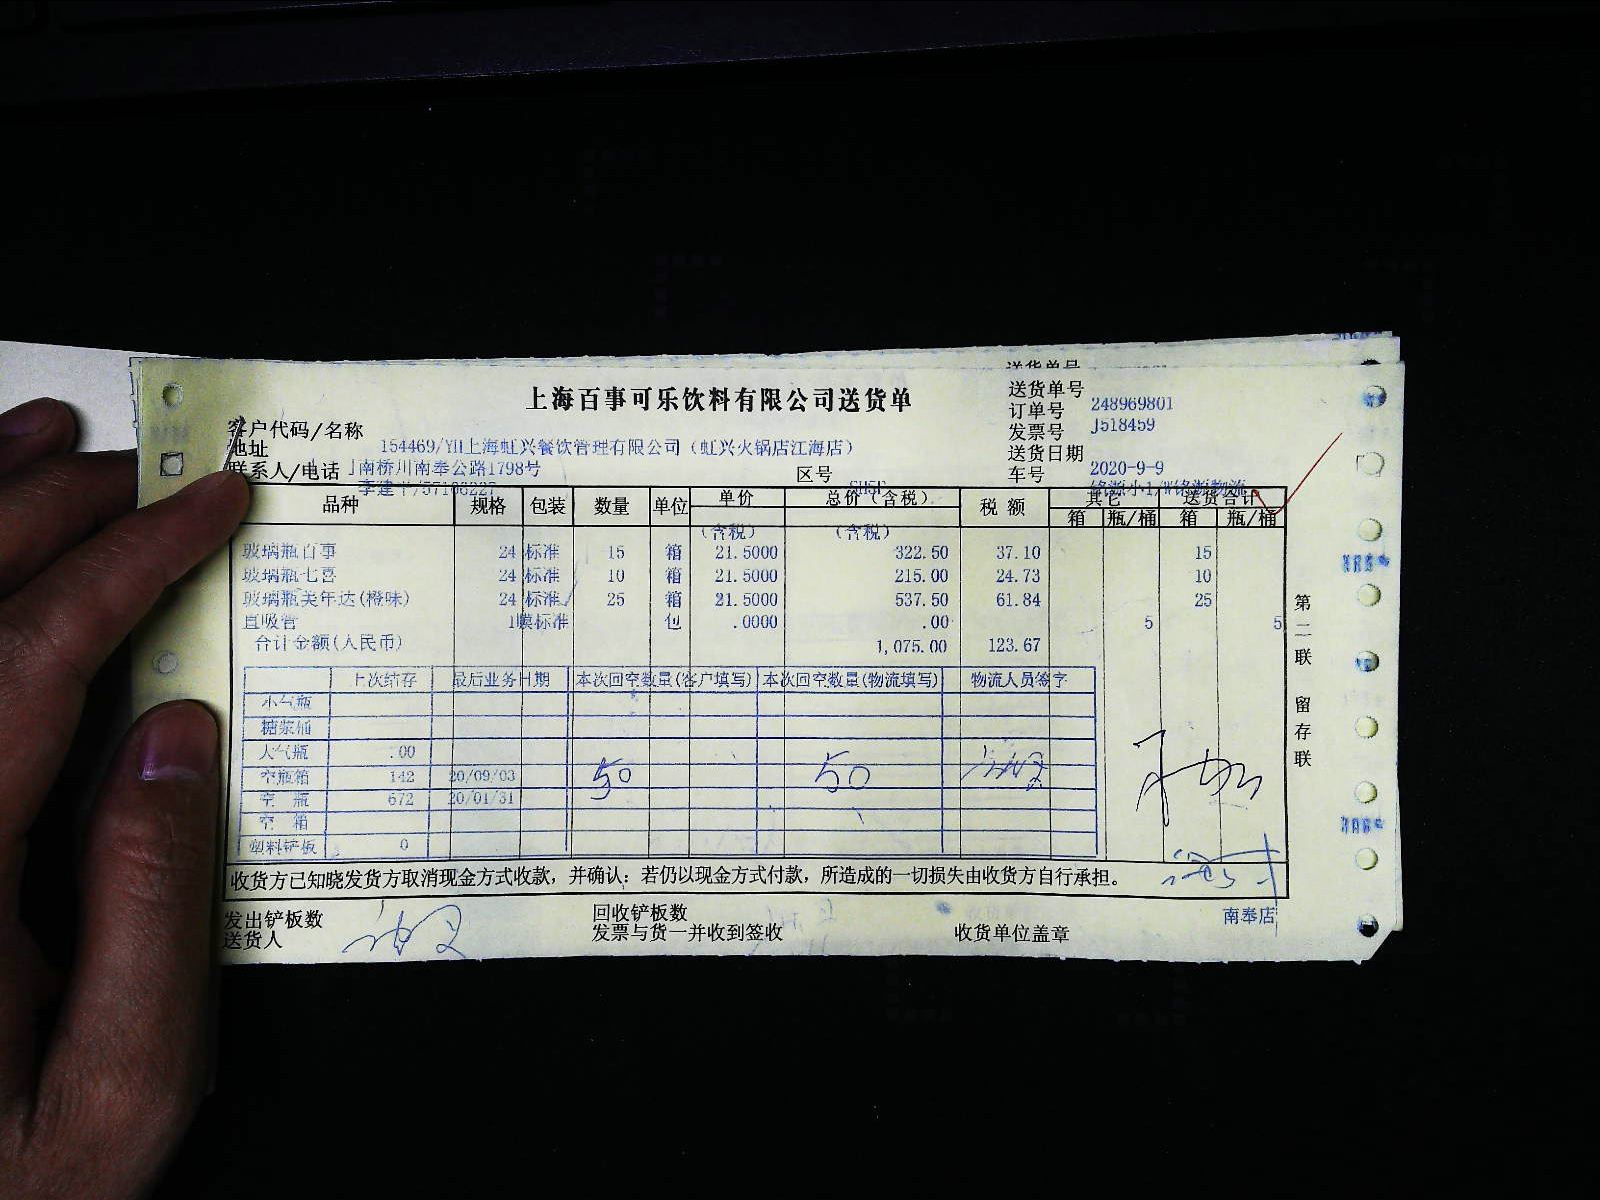 上海百事可乐饮料有限公司送货单
送货单号
送货单号
订单号 248969801
发票号 J518459
送货日期
车号 2020-9-9
客户代码/名称
地址 154469/YH上海虹兴餐饮管理有限公司(虹兴火锅店江海店)
联系人/电话 南桥川南奉公路1798号 区号
品种 规格 包装 数量 单位 单价 总价(含税) 税额 其它 送货合计
箱 瓶/桶 箱 瓶/桶
(含税) (含税)
玻璃瓶百事 24 标准 15 箱 21.5000 322.50 37.10 15
玻璃瓶七喜 24 标准 10 箱 21.5000 215.00 24.73 10
玻璃瓶美年达(橙味) 24 标准 25 箱 21.5000 537.50 61.84 25
直吸管 1膜标准 包 .0000 .00 5 5
合计金额(人民币) 1,075.00 123.67
上次结存 最后业务日期 本次回空数量(客户填写) 本次回空数量(物流填写) 物流人员签字
小气瓶
糖浆桶
大气瓶 .00
空瓶箱 142 20/09/03 50 50
空 瓶 672 20/01/31
空 箱
塑料铲板 0
收货方已知晓发货方取消现金方式收款，并确认：若仍以现金方式付款，所造成的一切损失由收货方自行承担。
发出铲板数 回收铲板数 南奉店
送货人 发票与货一并收到签收 收货单位盖章
第二联 留存联